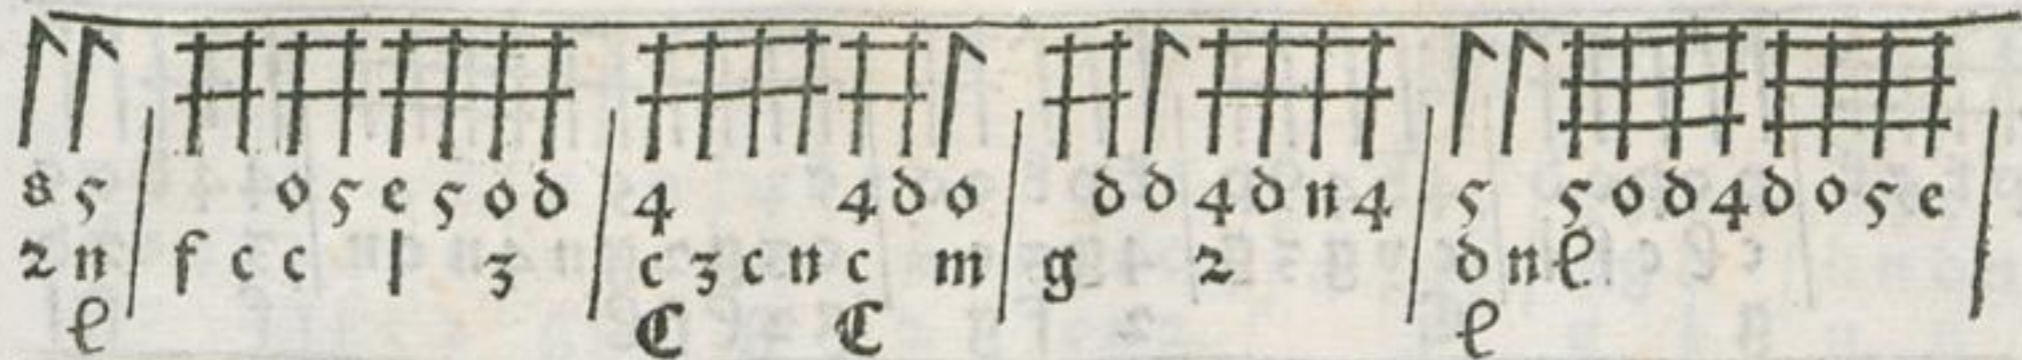 8 5 | o 5 e 5 o d | 4 4 d o | d d 4 d n 4 | 5 5 o d 4 d o 5 e |
2 n | f c c l 3 | c 3 c n c m | g 2 | d n ꝭ |
ꝭ | C C | | ꝭ